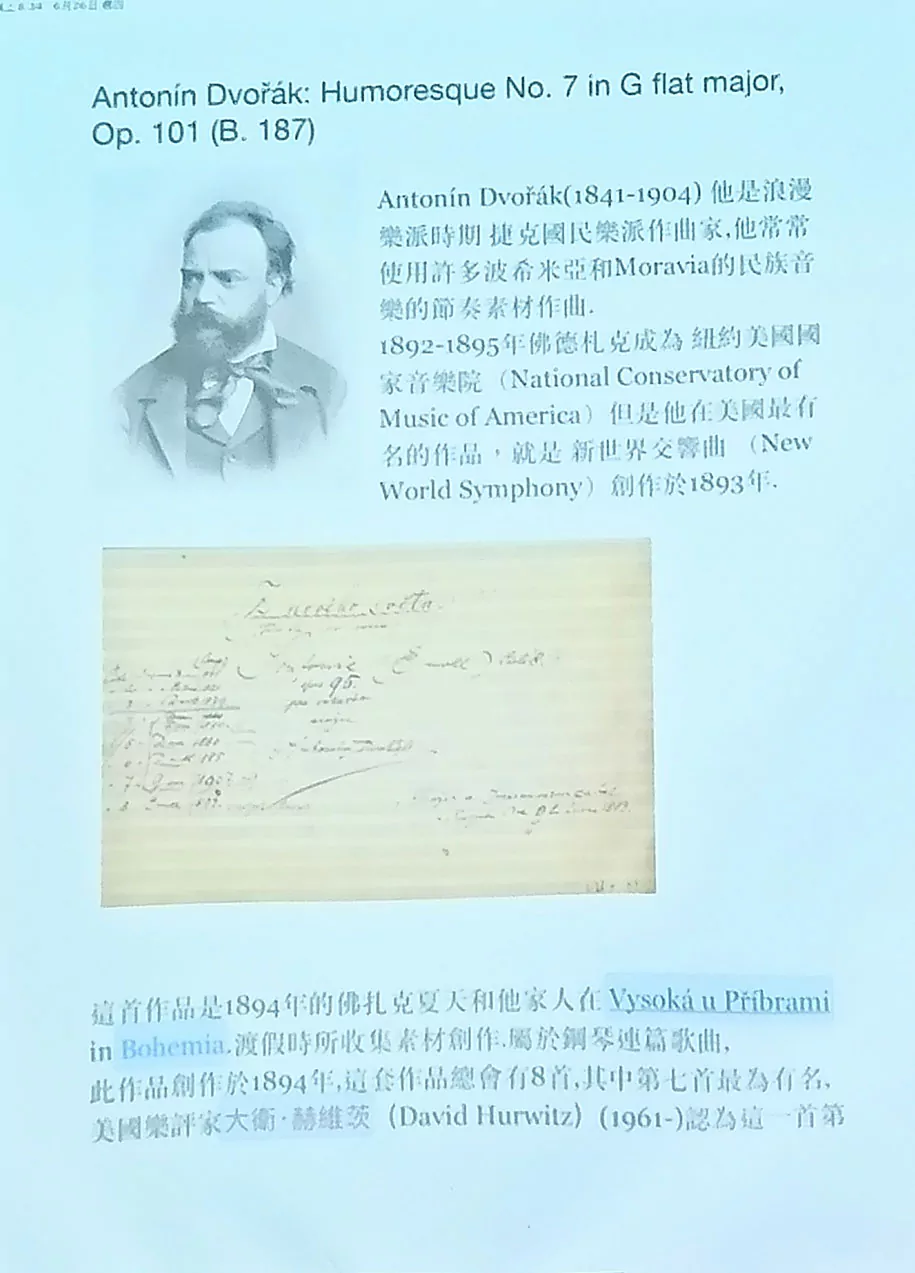 6月26日 週四
Antonín Dvořák: Humoresque No. 7 in G flat major,
Op. 101 (B. 187)
Antonín Dvořák(1841-1904) 他是浪漫
樂派時期 捷克國民樂派作曲家,他常常
使用許多波希米亞和Moravia的民族音
樂的節奏素材作曲.
1892-1895年佛德札克成為 紐約美國國
家音樂院（National Conservatory of
Music of America）但是他在美國最有
名的作品，就是 新世界交響曲 （New
World Symphony）創作於1893年.
95.
這首作品是1894年的佛扎克夏天和他家人在 Vysoká u Příbrami
in Bohemia.渡假時所收集素材創作.屬於鋼琴連篇歌曲,
此作品創作於1894年,這套作品總會有8首,其中第七首最為有名,
美國樂評家大衛·赫維茨（David Hurwitz）(1961-)認為這一首第